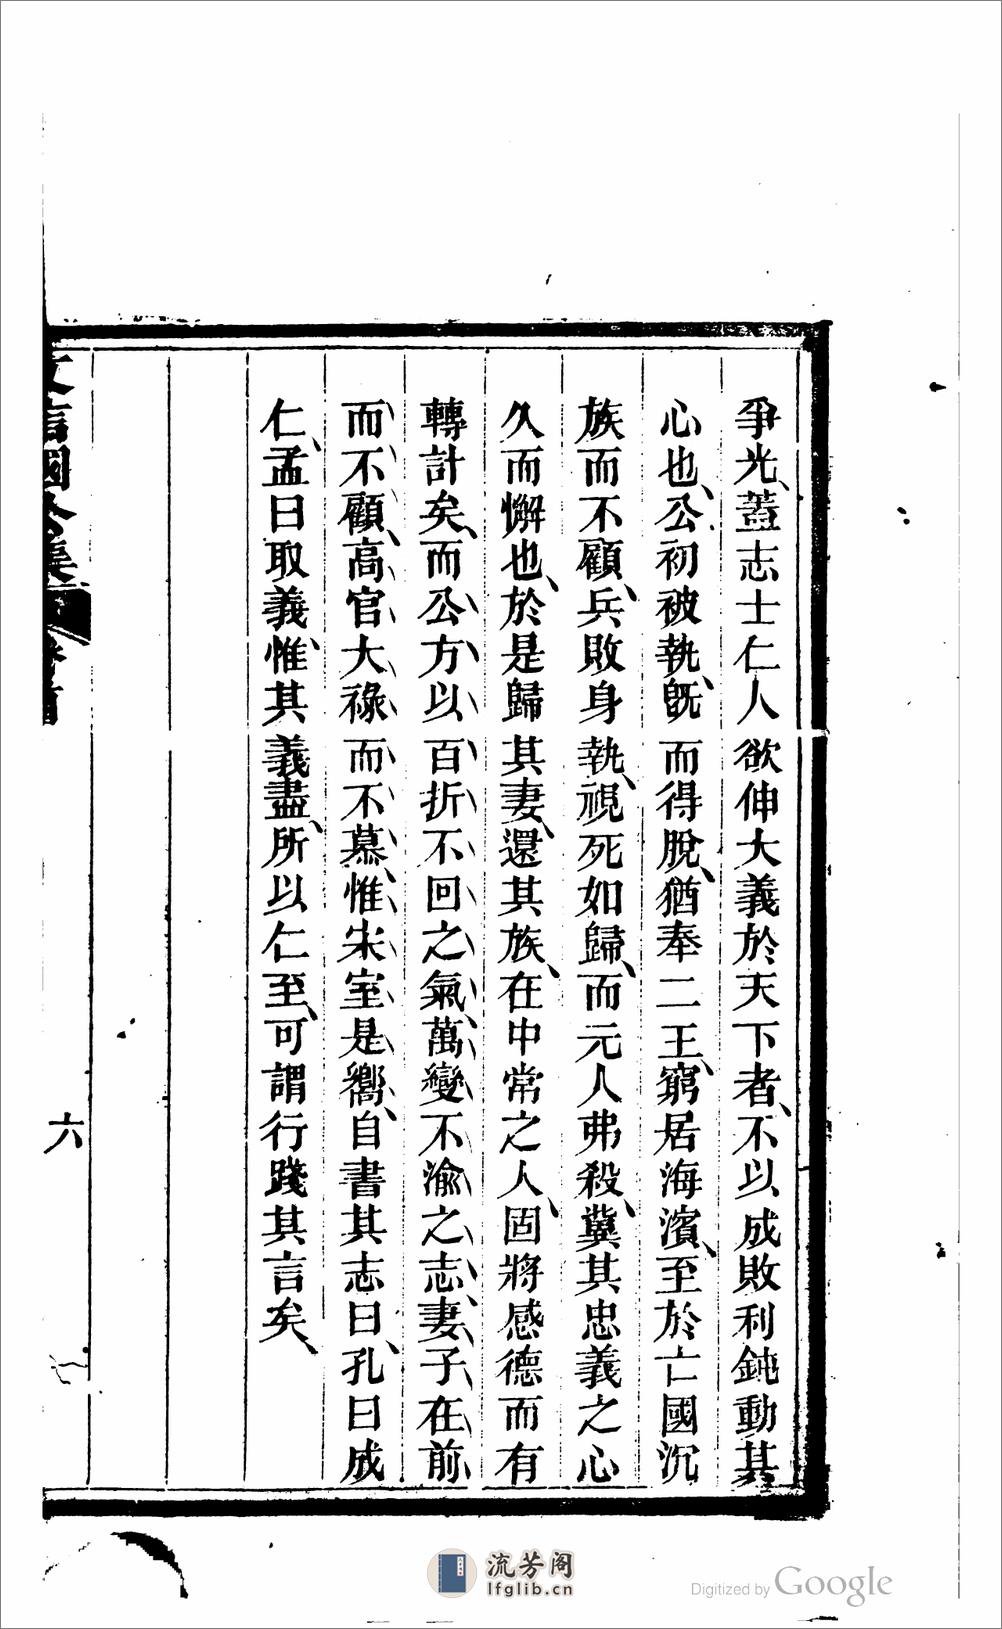 爭光、蓋志士仁人欲伸大義於天下者、不以成敗利鈍動其
心也、公初被執、旣而得脫、猶奉二王、窮居海濱、至於亡國沉
族而不顧、兵敗身執、視死如歸、而元人弗殺、冀其忠義之心
久而懈也、於是歸其妻、還其族、在中常之人、固將感德而有
轉計矣、而公方以百折不回之氣、萬變不渝之志、妻子在前
而不顧、高官大祿而不慕、惟宋室是嚮、自書其志曰、孔曰成
仁、孟曰取義、惟其義盡、所以仁至、可謂行踐其言矣、
文信國公集
卷首
六
流芳阁
lfglib.cn
Digitized by Google